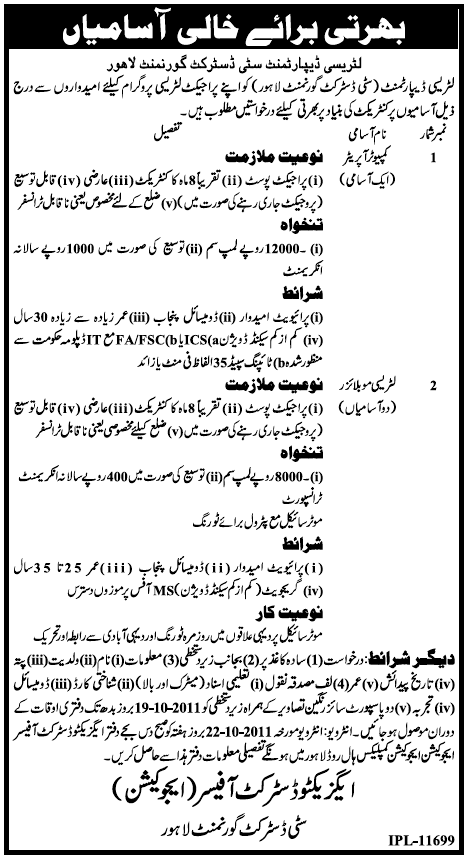 بھرتی برائے خالی آسامیاں
لٹریسی ڈیپارٹمنٹ سٹی ڈسٹرکٹ گورنمنٹ لاہور
لٹریسی ڈیپارٹمنٹ (سٹی ڈسٹرکٹ گورنمنٹ لاہور) کو اپنے پراجیکٹ لٹریسی پروگرام کیلئے امیدواروں سے درج
ذیل آسامیوں پر کنٹریکٹ کی بنیاد پر بھرتی کیلئے درخواستیں مطلوب ہیں۔
نمبر شمار نام آسامی تفصیل
1 کمپیوٹر آپریٹر نوعیت ملازمت
(ایک آسامی) (i) پراجیکٹ پوسٹ (ii) تقریباً 8 ماہ کا کنٹریکٹ (iii) عارضی (iv) قابل توسیع
(پروجیکٹ جاری رہنے کی صورت میں) (v) ضلع کے لئے مخصوص یعنی ناقابل ٹرانسفر
تنخواہ
(i) ۔12000 روپے لمپ سم (ii) توسیع کی صورت میں 1000 روپے سالانہ
انکریمنٹ
شرائط
(i) پرائیویٹ امیدوار (ii) ڈومیسائل پنجاب (iii) عمر زیادہ سے زیادہ 30 سال
(iv) کم از کم سیکنڈ ڈویژن a) ICS یا b) FA/FSC مع IT ڈپلومہ حکومت سے
منظور شدہ b) ٹائپنگ سپیڈ 35 الفاظ فی منٹ یا زائد
2 لٹریسی موبلائزر نوعیت ملازمت
(دو آسامیاں) (i) پراجیکٹ پوسٹ (ii) تقریباً 8 ماہ کا کنٹریکٹ (iii) عارضی (iv) قابل توسیع
(پروجیکٹ جاری رہنے کی صورت میں (v) ضلع کیلئے مخصوصی یعنی ناقابل ٹرانسفر
تنخواہ
(i) ۔8000 روپے لمپ سم (ii) توسیع کی صورت میں 400 روپے سالانہ انکریمنٹ
ٹرانسپورٹ
موٹر سائیکل مع پٹرول برائے ٹورنگ
شرائط
(i) پرائیویٹ امیدوار (ii) ڈومیسائل پنجاب (iii) عمر 25 تا 35 سال
(iv) گریجویٹ (کم از کم سیکنڈ ڈویژن) MS آفس پر موزوں دسترس
نوعیت کار
موٹر سائیکل پر دیہی علاقوں میں روزمرہ ٹورنگ اور دیہی آبادی سے رابطہ اور تحریک
دیگر شرائط: درخواست (1) سادہ کاغذ پر (2) بجانب زیر دستخطی (3) معلومات (i) نام (ii) ولدیت (iii) پتہ
(iv) تاریخ پیدائش (v) عمر (4) لف مصدقہ نقول (i) تعلیمی اسناد (میٹرک اور بالا) (ii) شناختی کارڈ (iii) ڈومیسائل
(iv) تجربہ (v) دو پاسپورٹ سائز رنگین تصاویر کے ہمراہ زیر دستخطی کو 19-10-2011 بروز بدھ تک دفتری اوقات کے
دوران موصول ہو جائیں۔ انٹرویو: انٹرویو مورخہ 22-10-2011 بروز ہفتہ کو صبح دس بجے دفتر ایگزیکٹو ڈسٹرکٹ آفیسر
ایجوکیشن ایجوکیشن کمپلیکس ہال روڈ لاہور میں ہونگے تفصیلی معلومات دفتر ہذا سے حاصل کریں۔
ایگزیکٹو ڈسٹرکٹ آفیسر (ایجوکیشن)
سٹی ڈسٹرکٹ گورنمنٹ لاہور
IPL-11699